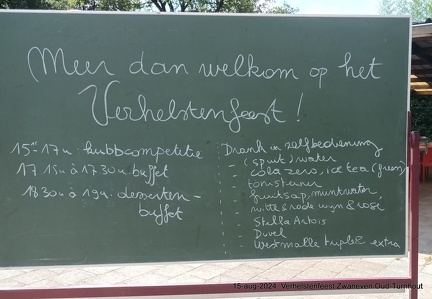 Meer dan welkom op het
Verhelstenfeest!
15u-17u: kubbcompetitie
17 15u à 17.30u buffet
18 30u à 19u: desserten-
buffet
Drank in zelfbediening
- (spuit)water
- cola zero, ice tea (green)
- fruitsap, muntwater,
witte & rode wijn & rosé
- Stella Artois
- Duvel
- Westmalle tripel & extra
15-aug-2024 Verhelstenfeest Zwaneven Oud-Turnhout